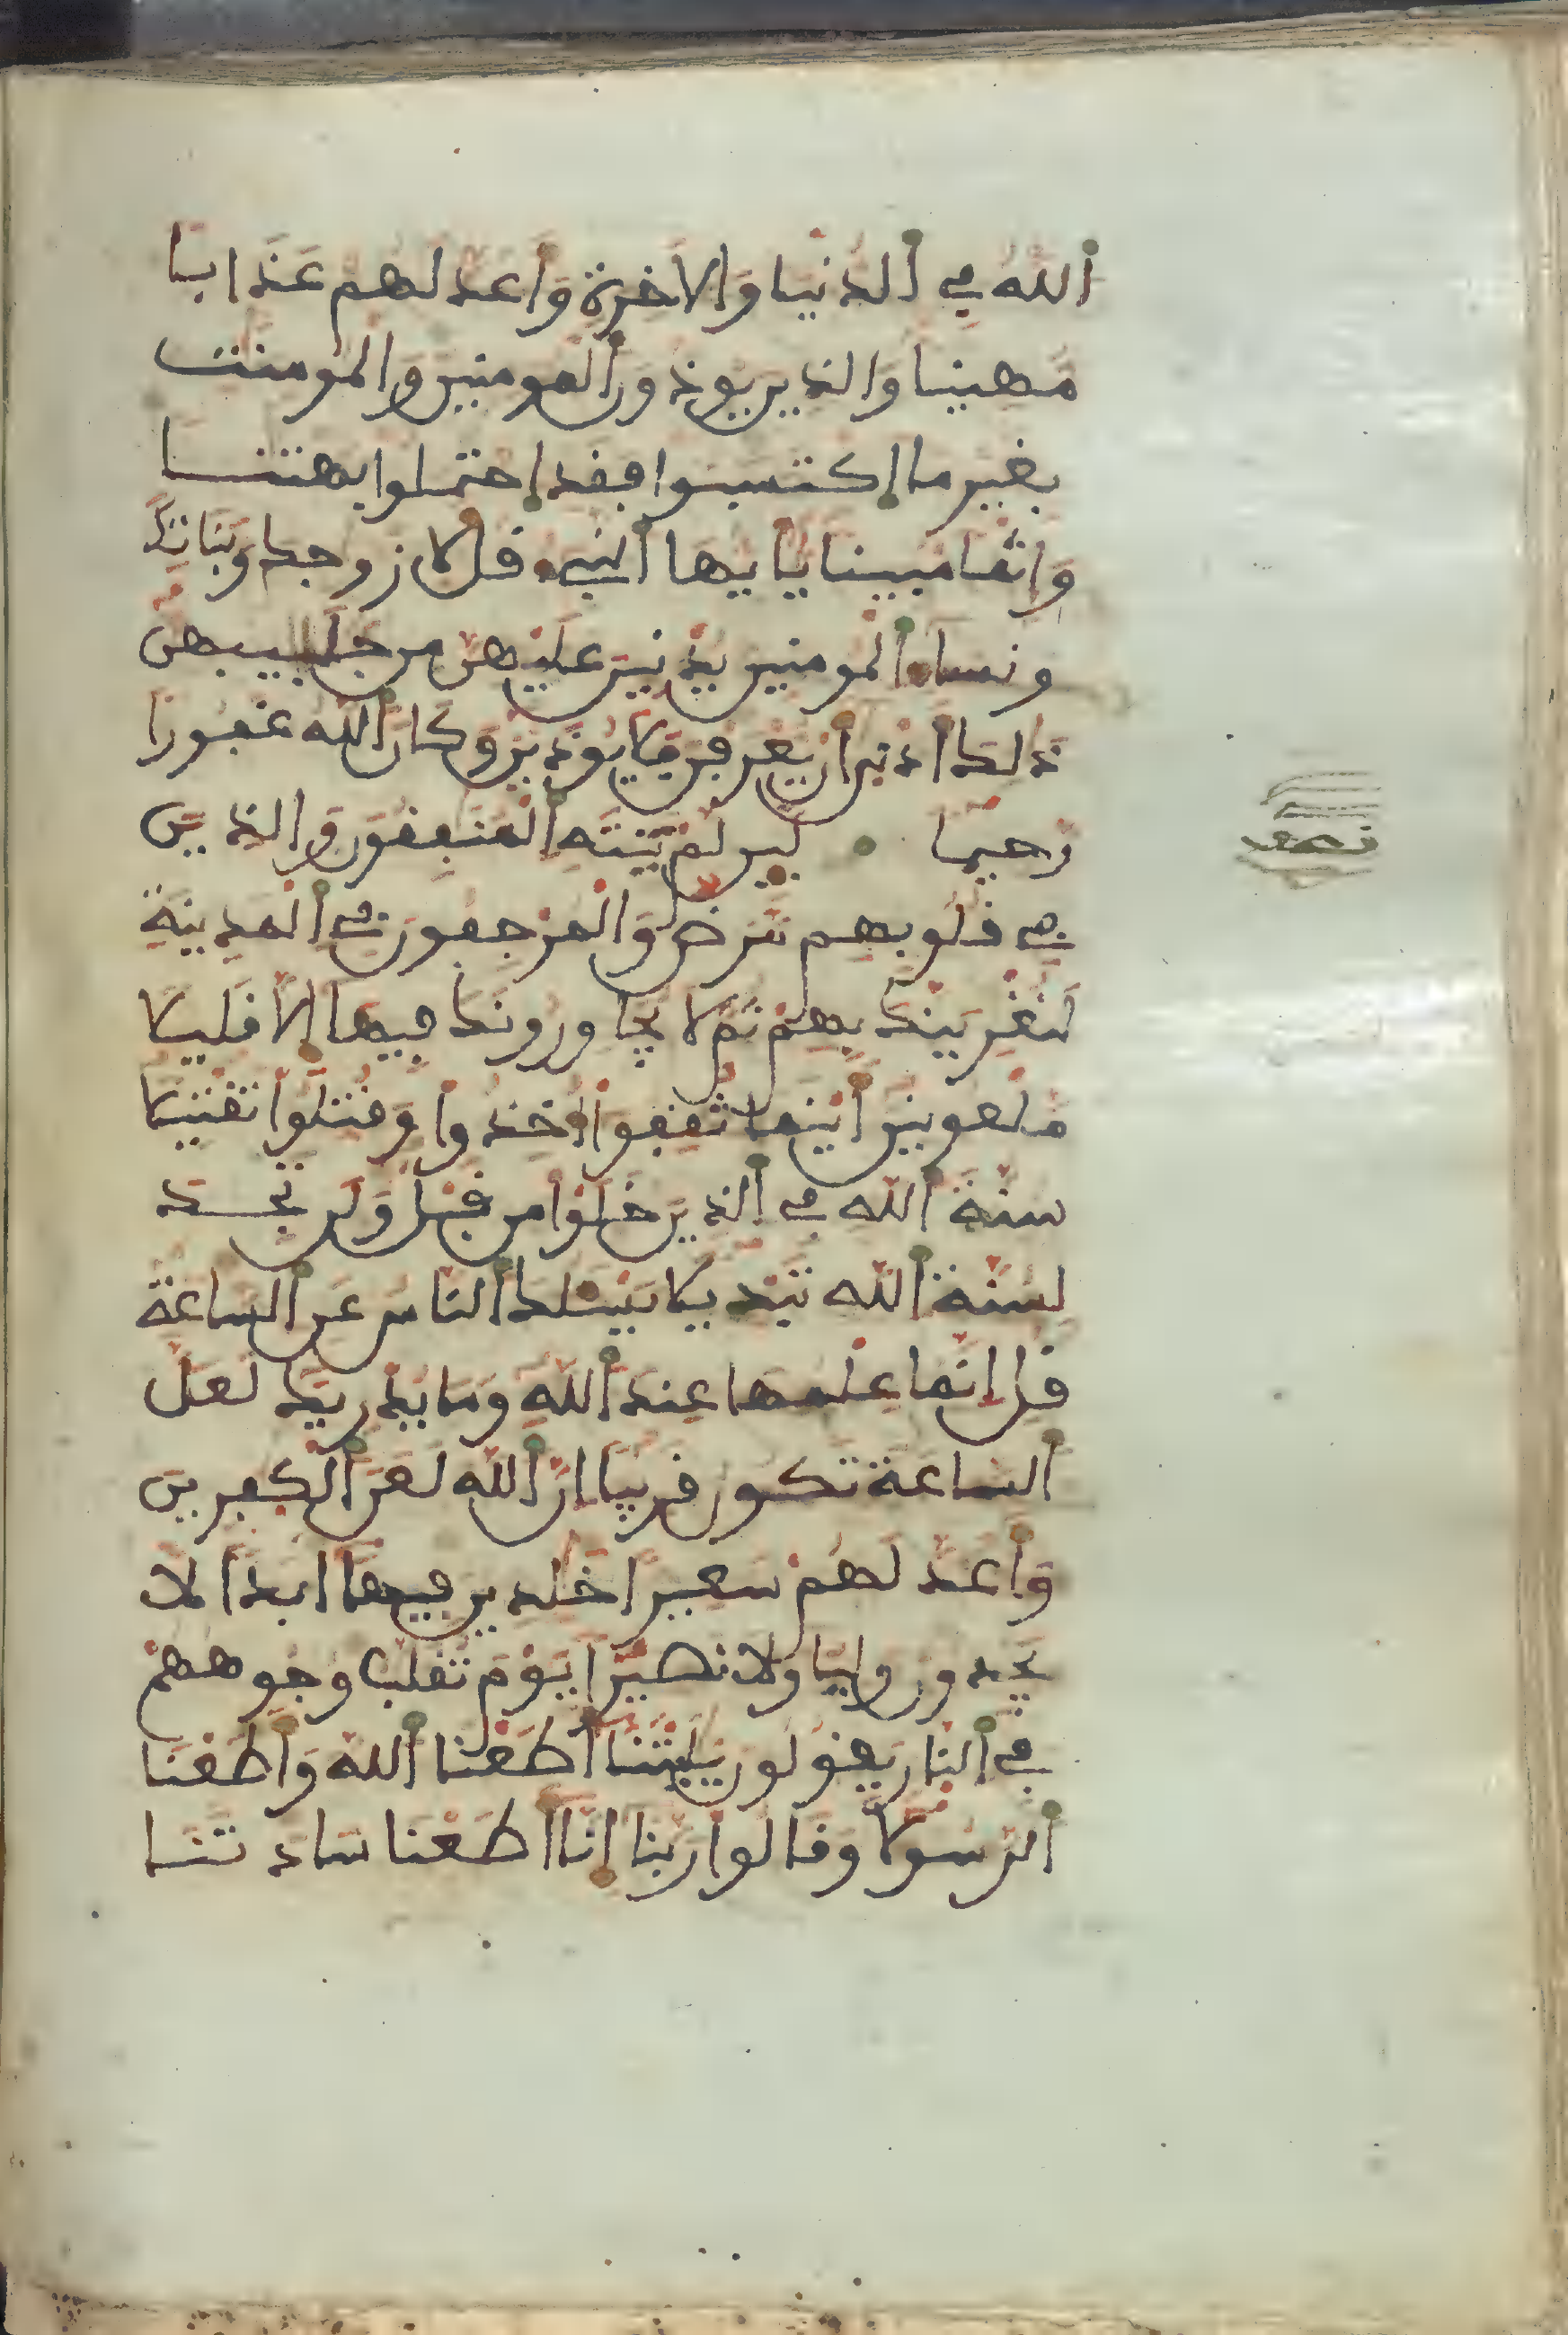 الله في الدنيا والاخرة وأعد لهم عذابا
مهينا والذين يوذون المومنين والمومنت
بغير ما اكتسبوا فقد احتملوا بهتنا
وإثما مبينا يأيها النبيء قل لازوجك وبناتك
ونساء المومنين يدنين عليهن من جلبيبهن
ذلك أدنى أن يعرفن فلا يوذين وكان الله غفورا
رحيما لين لم ينته المنفقون والذين
في قلوبهم مرض والمرجفون في المدينة
لنغرينك بهم ثم لا يجاورونك فيها إلا قليلا
ملعونين أينما ثقفوا أخذوا وقتلوا تقتيلا
سنة الله في الذين خلوا من قبل ولن تجد
لسنة الله تبديلا يسلك الناس عن الساعة
قل إنما علمها عند الله وما يدريك لعل
الساعة تكون قريبا إن الله لعن الكفرين
وأعد لهم سعيرا خلدين فيها أبدا لا
يجدون وليا ولا نصيرا يوم تقلب وجوههم
في النار يقولون يليتنا أطعنا الله وأطعنا
الرسولا وقالوا ربنا إنا أطعنا سادتنا
نصف